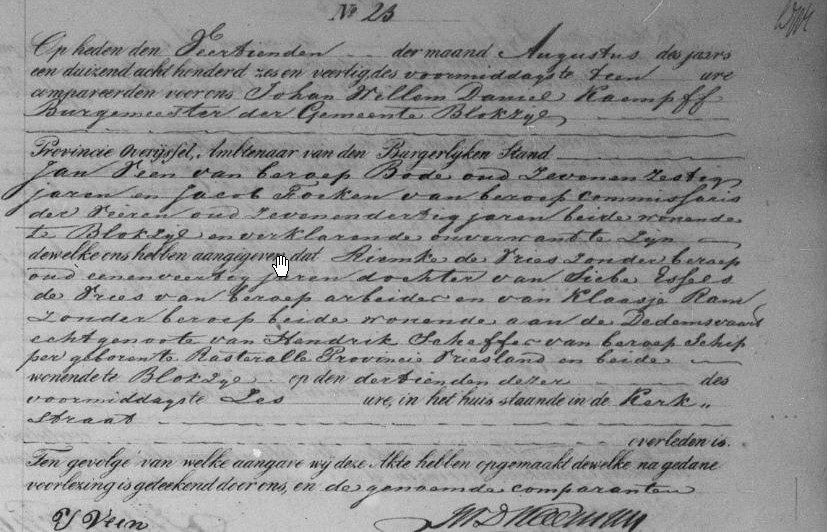 No 23
Op heden den Veertienden der maand Augustus des jaars
een duizend acht honderd zes en veertig, des voormiddags te tien ure
compareerden voor ons Johan Willem Daniel Kaempff
Burgemeester der Gemeente Blokzyl
Provincie Overijssel, Ambtenaar van den Burgerlijken Stand
Jan Veen van beroep Bode oud Zevenenzestig
jaren en Jacob Focken van beroep Commissaris
der Veeren oud Zevenendertig jaren beide wonende
te Blokzyl en verklarende onverwant te zyn
dewelke ons hebben aangegeven, dat Riemke de Vries zonder beroep
oud eenenveertig jaren dochter van Siebe
de Vries van beroep arbeider en van Klaasje Ram
zonder beroep beide wonende aan de Dedemsvaart
echtgenoote van Hendrik Scheffer van beroep Schip
per geboren te Provincie Vriesland en beide
wonende te Blokzyl op den dertienden dezer des
voormiddags te Zes ure, in het huis staande in de Kerk„
straat
overleden is.
Ten gevolge van welke aangave wij deze Akte hebben opgemaakt dewelke na gedane
voorlezing is geteekend door ons, en de genoemde comparanten
J Veen